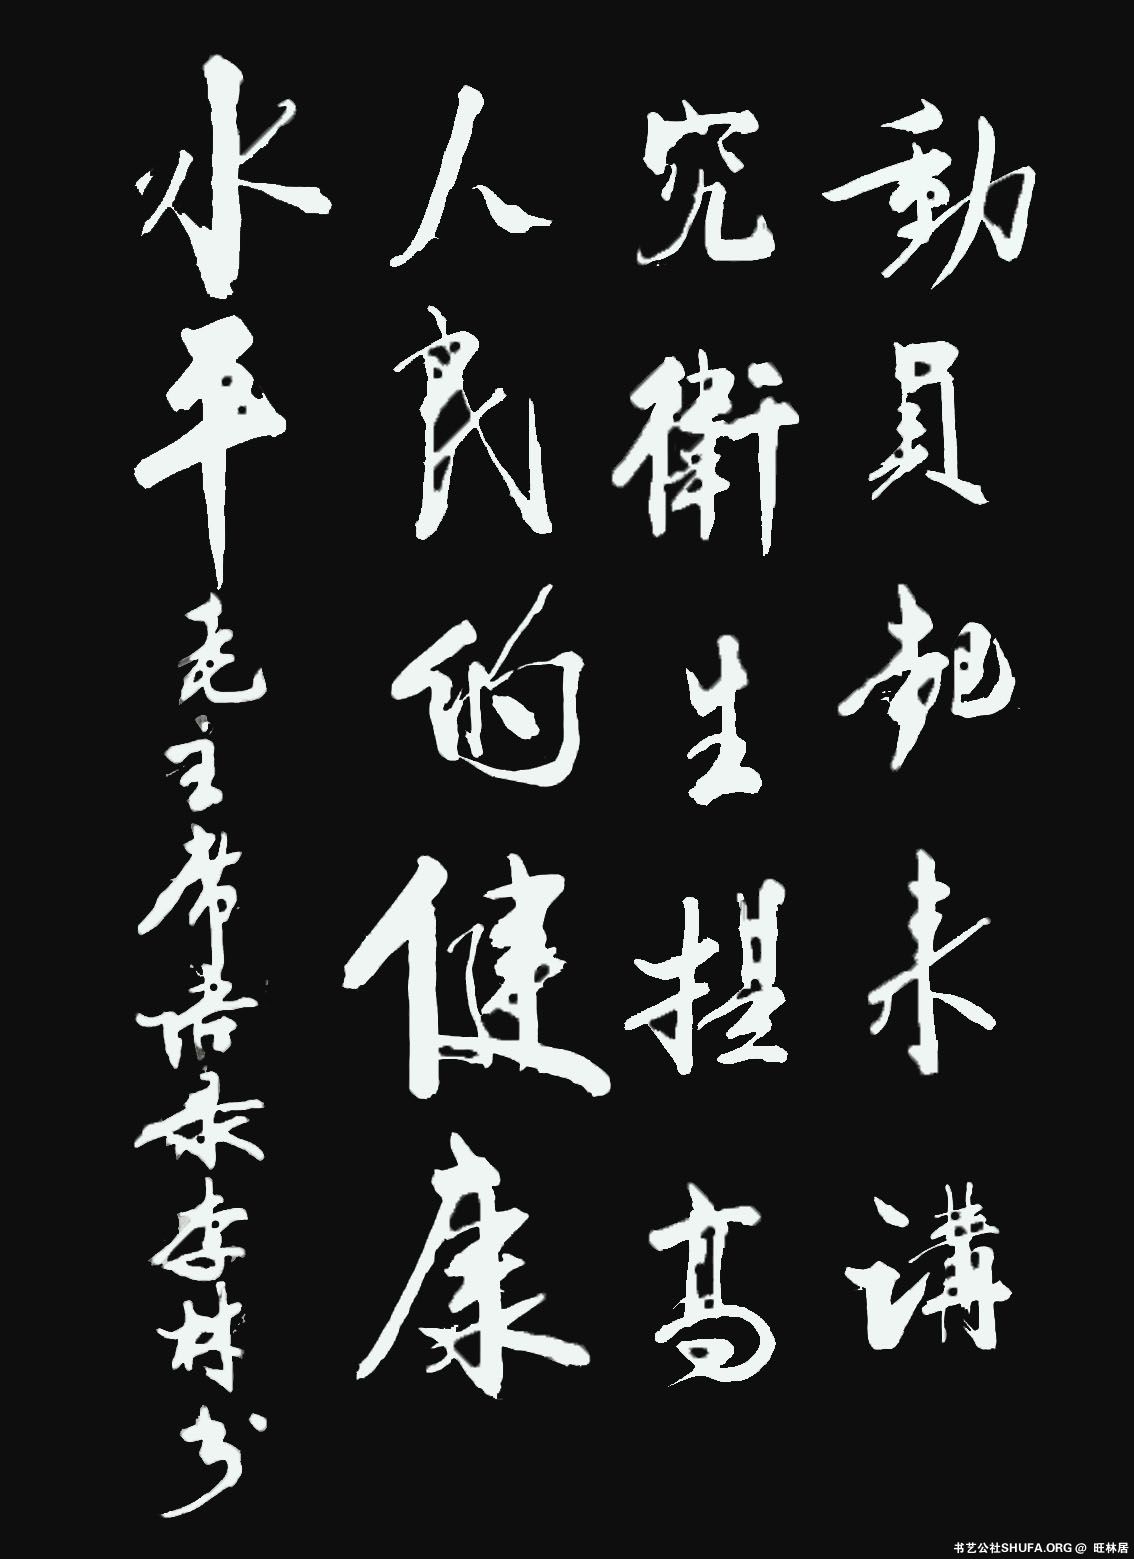 動員起来講
究衛生提高
人民的健康
水平毛主席语录李林书
书艺公社SHUFA.ORG @ 旺林居